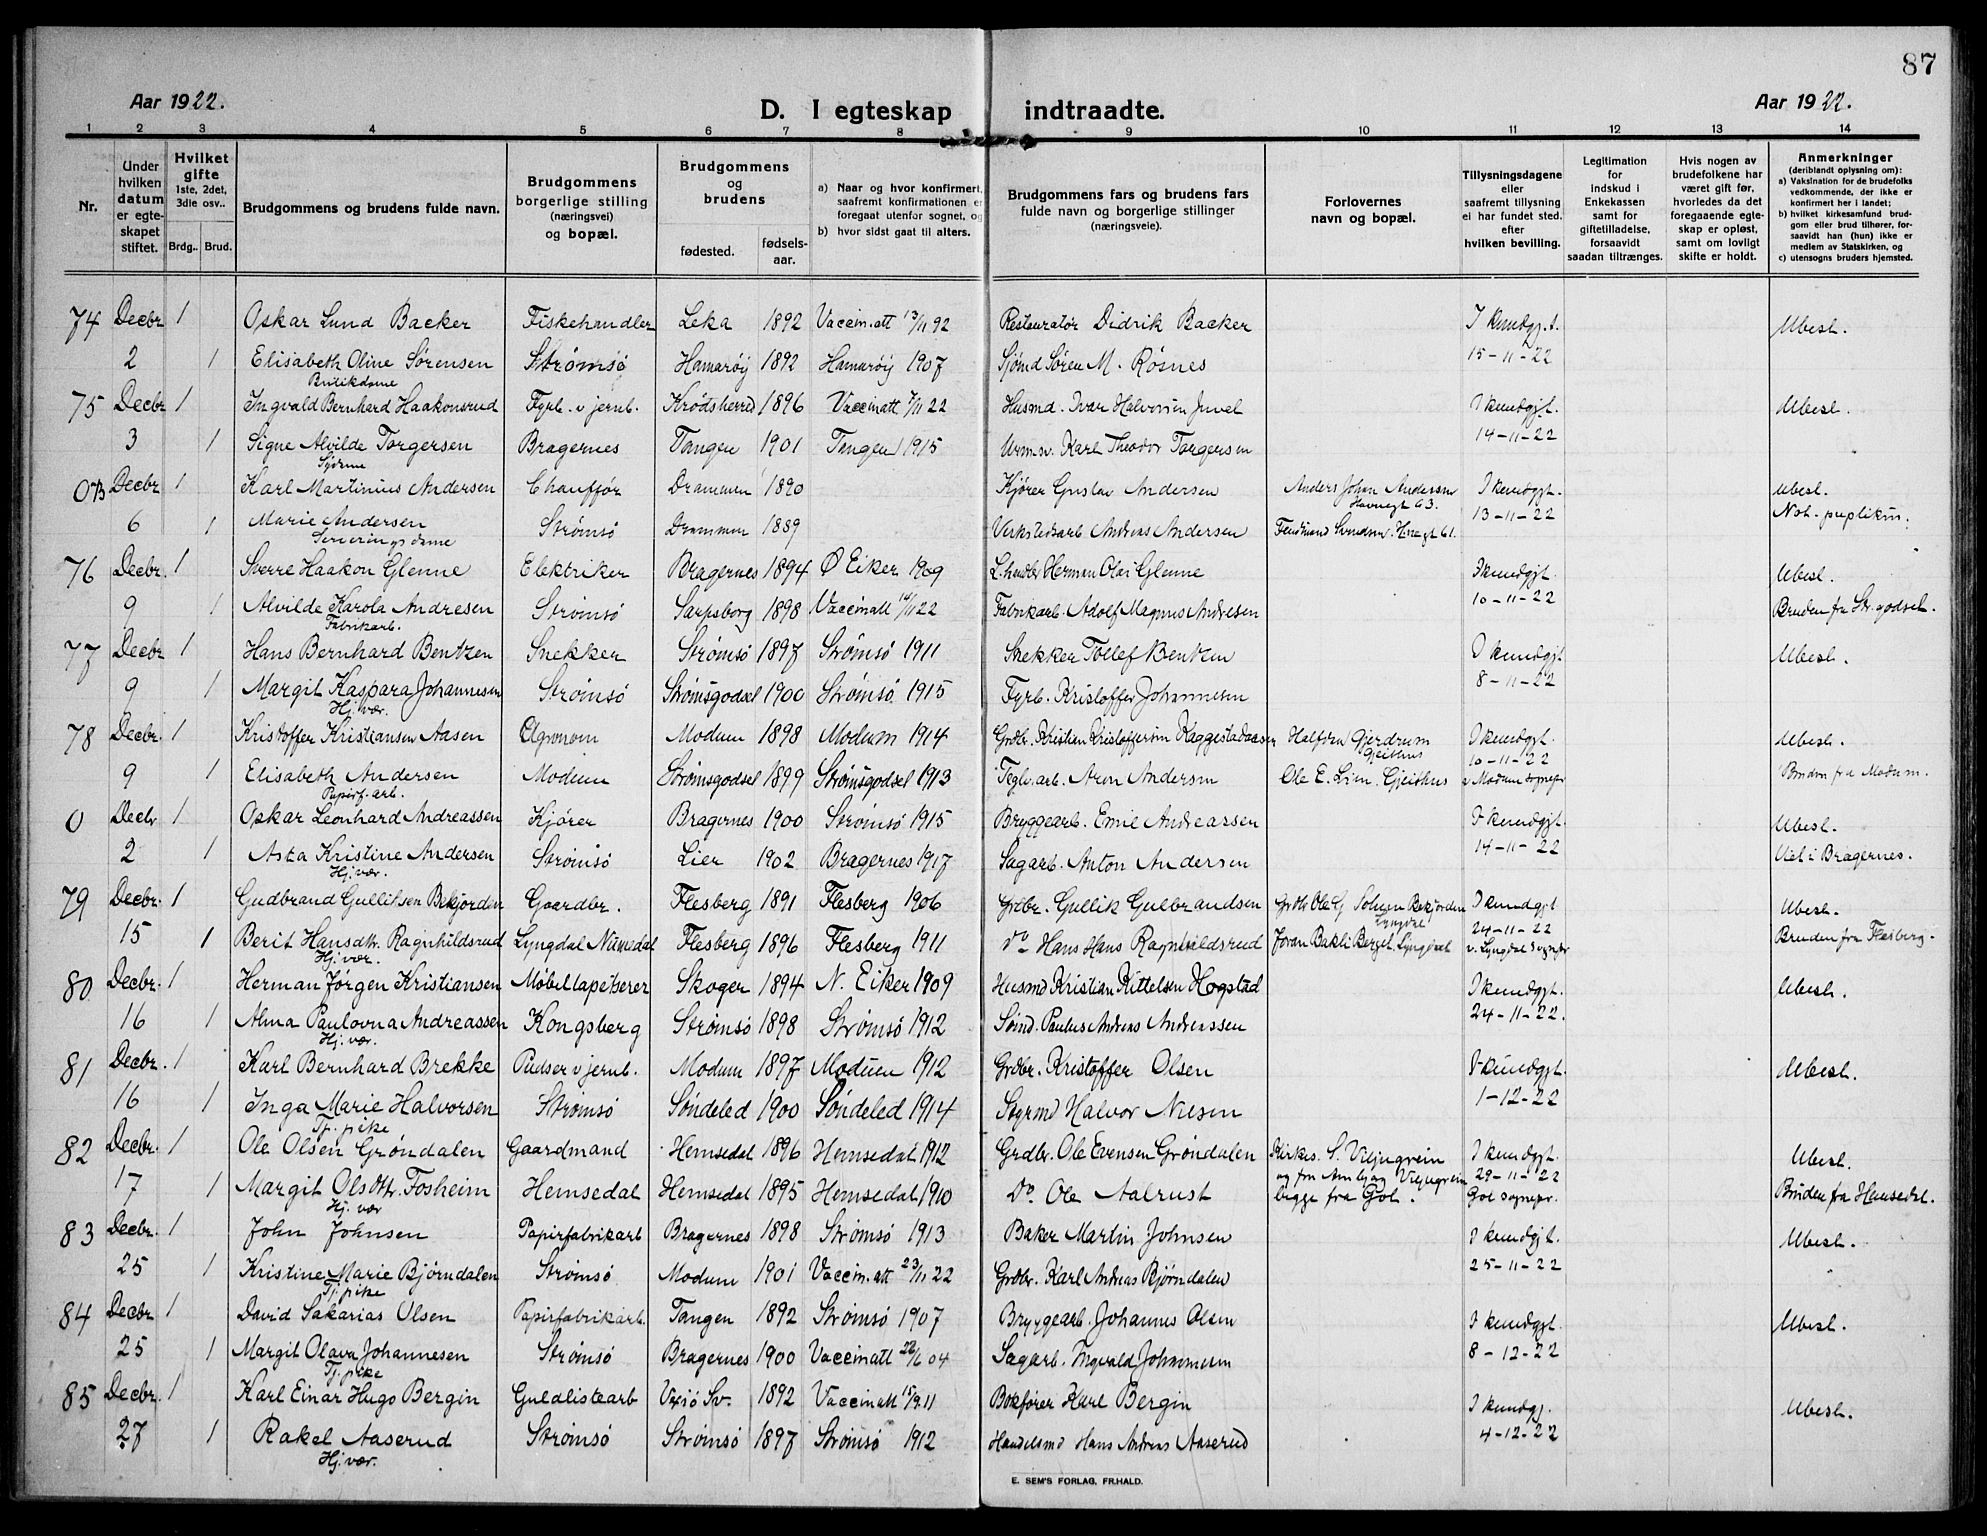 87
Aar 1922.
D. I egteskap indtraadte.
Aar 1922.
1 2 3 4 5 6 7 8 9 10 11 12 13 14
Nr.
Under hvilken datum er egteskapet stiftet.
Hvilket gifte 1ste, 2det, 3die osv..
Brdg.. Brud.
Brudgommens og brudens fulde navn.
Brudgommens borgerlige stilling (næringsvei) og bopæl.
Brudgommens og brudens
fødested. fødselsaar.
a) Naar og hvor konfirmert, saafremt konfirmationen er foregaat utenfor sognet, og
b) hvor sidst gaat til alters.
Brudgommens fars og brudens fars fulde navn og borgerlige stillinger (næringsveie).
Forlovernes navn og bopæl.
Tillysningsdagene eller saafremt tillysning ei har fundet sted. efter hvilken bevilling.
Legitimation for indskud i Enkekassen samt for giftetilladelse, forsaavidt saadan tiltrænges.
Hvis nogen av brudefolkene har været gift før, hvorledes da det foregaaende egteskap er opløst, samt om lovligt skifte er holdt.
Anmerkninger (deriblandt oplysning om):
a) Vaksination for de brudefolks vedkommende, der ikke er konfirmert her i landet;
b) hvilket kirkesamfund brudgom eller brud tilhører, forsaavidt han (hun) ikke er medlem av Statskirken, og
c) utensogns bruders hjemsted.
74 Decbr 1 Oskar Lund Backer Fiskehandler Leka 1892 Vaccin.att 13/11 92 Restauratør Didrik Backer I kundgj.t. Ubesl.
2 1 Elisabeth Oline Sørensen Strømsø Hamarøj 1892 Hamarøj 1907 Sjømd Søren M. Røsnes 15-11-22
Butikdame
75 Decbr 1 Ingvald Bernhard Haakonsrud Fyrb. v jernb. Krødsherred 1896 Vaccinatt 7/11 22 Husmd. Ivar Halvorsen Juvel I kundgjt. Ubesl.
3 1 Signe Alvilde Torgersen Bragernes Tangen 1901 Tangen 1915 Urm.sv. Karl Theodor Torgersen 14-11-22
Sydame
0B Decbr 1 Karl Martinius Andersen Chauffør Drammen 1890 Kjører Gustav Andersen Anders Johan Andersen I kundgjt. Ubesl.
Havnegt 63.
6 1 Marie Andersen Strømsø Drammen 1889 Verkstedsarb Andreas Andersen Ferdinand Svendsen. Havegt 61. 13-11-22 Not. puplikus.
Serveringsdame
76 Decbr. 1 Sverre Haakon Glenne Elektriker Bragernes 1894 Ø Eiker 1909 L.handler Herman Olai Glenne I kundgjt. Ubesl.
9 1 Alvilde Karola Andresen Strømsø Sarpsborg 1898 Vaccinatt 14/11 22 Fabrikarb. Adolf Magnus Andresen 10-11-22 Bruden fra Str.godset.
Fabrikarb.
77 Decbr 1 Hans Bernhard Bentzen Snekker Strømsø 1897 Strømsø 1911 Snekker Tollef Bentzen I kundgjt Ubesl.
9 1 Margit Kaspara Johannesen Strømsø Strømsgodset 1900 Strømsø 1915 Fyrb. Kristoffer Johannesen 8-11-22
Hj.vær.
78 Decbr. 1 Kristoffer Kristiansen Aasen Agronom Modum 1898 Modum 1914 Grdbr. Kristian Kristoffersen Kaggestadaasen Halfdan Gjerdrum I kundgjt. Ubesl.
Gjeithus 10-11-22
9 1 Elisabeth Andersen Modum Strømsgodset 1899 Strømsgodset 1913 Teglv.arb. Aron Andersen Ole E. Lien. Gjeithus v Modum sognepr Bruden fra Modum.
Papirf.arb.
0 Decbr 1 Oskar Leonhard Andreassen Kjører Bragernes 1900 Strømsø 1915 Bryggearb. Emil Andreassen I kundgjt. Ubesl.
2 1 Asta Kristine Andersen Strømsø Lier 1902 Bragernes 1917 Sagarb. Anton Andersen 14-11-22 Viet i Bragernes.
Hj.vær.
79 Decbr. 1 Gudbrand Gulliksen Bekjorden Gaardbr. Flesberg 1891 Flesberg 1906 Grdbr. Gullik Gulbrandsen Grdbr Ole G Bekjorden I kundgjt Ubesl.
Lyngdal 24-11-22
15 1 Berit Hansdtr. Ragnhildsrud Lyngdal Numedal Flesberg 1896 Flesberg 1911 do Hans Hans Ragnhildsrud Lyngdal v. Lyngdal sognepr Bruden fra Flesberg.
Hj.vær.
80 Decbr. 1 Herman Jørgen Kristiansen Møbeltapetserer Skoger 1894 N. Eiker 1909 Husmd Kristian Kittelsen Hogstad I kundgjt. Ubesl.
16 1 Alma Paulovna Andreassen Kongsberg Strømsø 1898 Strømsø 1912 Sømd. Paulus Andreas Andreassen 24-11-22.
Hj.vær.
81 Decbr. 1 Karl Bernhard Brekke Pudser v jernb. Modum 1897 Modum 1912 Grdbr. Kristoffer Olsen I kundgjt. Ubesl.
16 1 Inga Marie Halvorsen Strømsø Søndeled 1900 Søndeled 1914 Styrmd Halvor Nilsen 1-12-22
Tj.pike
82 Decbr. 1 Ole Olsen Grøndalen Gaardmand Hemsedal 1896 Hemsedal 1912 Grdbr. Ole Evensen Grøndalen Kirkes. S. Viljugrein I kundgjt. Ubesl.
og fru Viljugrein 29-11-22
17 1 Margit Olsdtr. Fosheim Hemsedal Hemsedal 1895 Hemsedal 1910 do Ole Aalrust begge fra Gol. Gol sognepr. Bruden fra Hemsedal.
Hj.vær
83 Decbr. 1 John Johnsen Papirfabrikarb Bragernes 1898 Strømsø 1913 Baker Martin Johnsen I kundgjt. Ubesl.
25 1 Kristine Marie Bjørndalen Strømsø Modum 1901 Vaccin.att 23/11 22 Grdbr. Karl Andreas Bjørndalen 25-11-22
Tj.pike
84 Decbr 1 David Sakarias Olsen Papirfabrikarb. Tangen 1892 Strømsø 1907 Bryggearb. Johannes Olsen I kundgjt. Ubesl.
25 1 Margit Olava Johannesen Strømsø Bragernes 1900 Vaccinatt 28/6 04 Sagarb. Ingvald Johannesen 8-12-22
Tj.pike
85 Decbr. 1 Karl Einar Hugo Bergin Guldlistearb Vaxiø Sv. 1892 Vaccinatt 15/9 11 Bokfører Karl Bergin I kundgj. Ubesl.
27 1 Rakel Aaserud Strømsø Strømsø 1897 Strømsø 1912 Handelsmd Hans Andreas Aaserud 4-12-22
Hj.vær.
E. SEM'S FORLAG, FR.HALD.